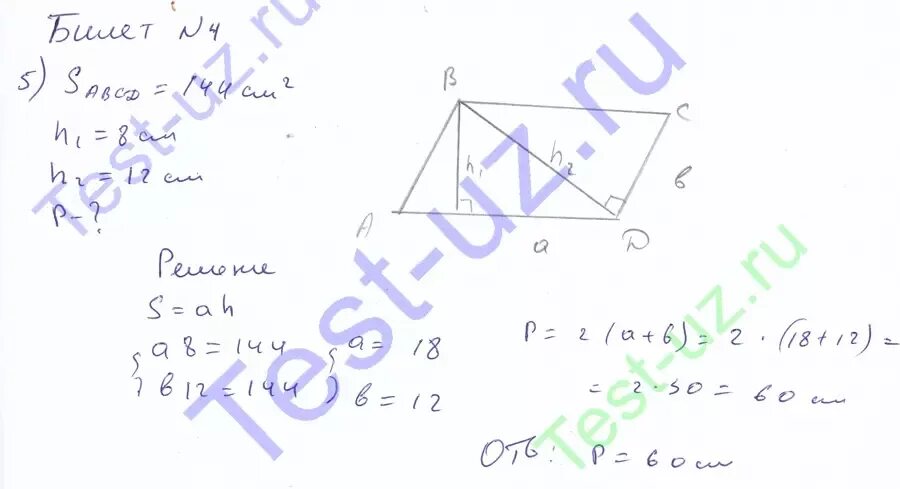 Билет N4
5) S ABCD = 144 см²
h₁ = 8 см
h₂ = 12 см
P - ?
B
C
h₁
h₂
в
A
a
D
Решение
S = ah
{ a 8 = 144 { a = 18
в 12 = 144 в = 12
P = 2 (a + в) = 2 · (18 + 12) =
= 2 · 30 = 60 см
ОТВ: P = 60 см
Test-uz.ru
Test-uz.ru
Test-uz.ru